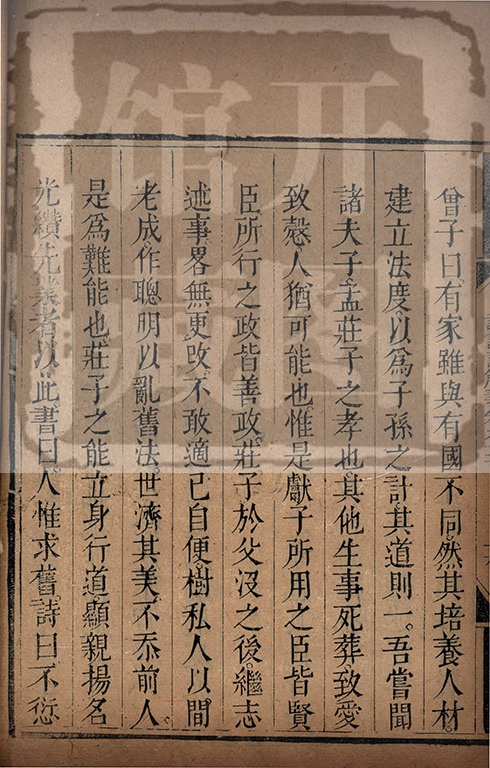 曾子曰。有家雖與有國不同。然其培養人材。
建立法度。以爲子孫之計。其道則一。吾嘗聞
諸夫子。孟莊子之孝也。其他生事死葬。致愛
致慤。人猶可能也。惟是獻子所用之臣皆賢
臣。所行之政皆善政。莊子於父沒之後。繼志
述事。畧無更改。不敢適己自便。樹私人以間
老成。作聰明以亂舊法。世濟其美。不忝前人。
是爲難能也。莊子之能立身行道。顯親揚名
光纘先業者以此。書曰。人惟求舊。詩曰。不愆